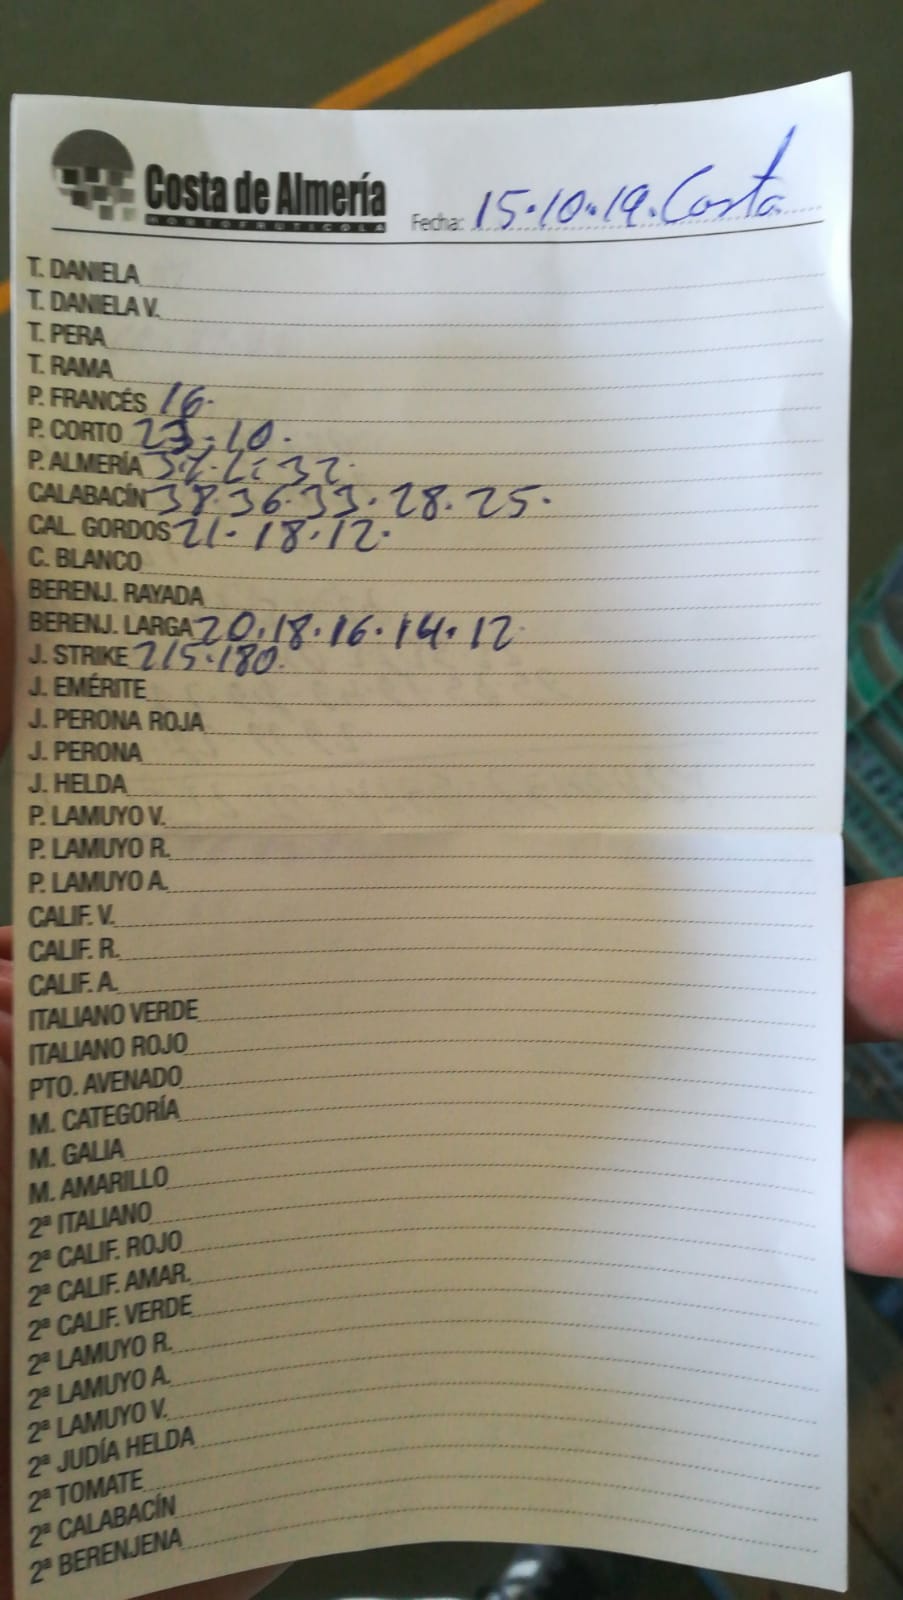 Costa de Almería
HORTOFRUTICOLA
Fecha: 15.10.19. Costa
T. DANIELA
T. DANIELA V.
T. PERA
T. RAMA
P. FRANCÉS 16.
P. CORTO 23.10.
P. ALMERÍA 32.
CALABACÍN 38.36.33.28.25.
CAL. GORDOS 21.18.12.
C. BLANCO
BERENJ. RAYADA
BERENJ. LARGA 20.18.16.14.12.
J. STRIKE 215.180.
J. EMÉRITE
J. PERONA ROJA
J. PERONA
J. HELDA
P. LAMUYO V.
P. LAMUYO R.
P. LAMUYO A.
CALIF. V.
CALIF. R.
CALIF. A.
ITALIANO VERDE
ITALIANO ROJO
PTO. AVENADO
M. CATEGORÍA
M. GALIA
M. AMARILLO
2ª ITALIANO
2ª CALIF. ROJO
2ª CALIF. AMAR.
2ª CALIF. VERDE
2ª LAMUYO R.
2ª LAMUYO A.
2ª LAMUYO V.
2ª JUDÍA HELDA
2ª TOMATE
2ª CALABACÍN
2ª BERENJENA